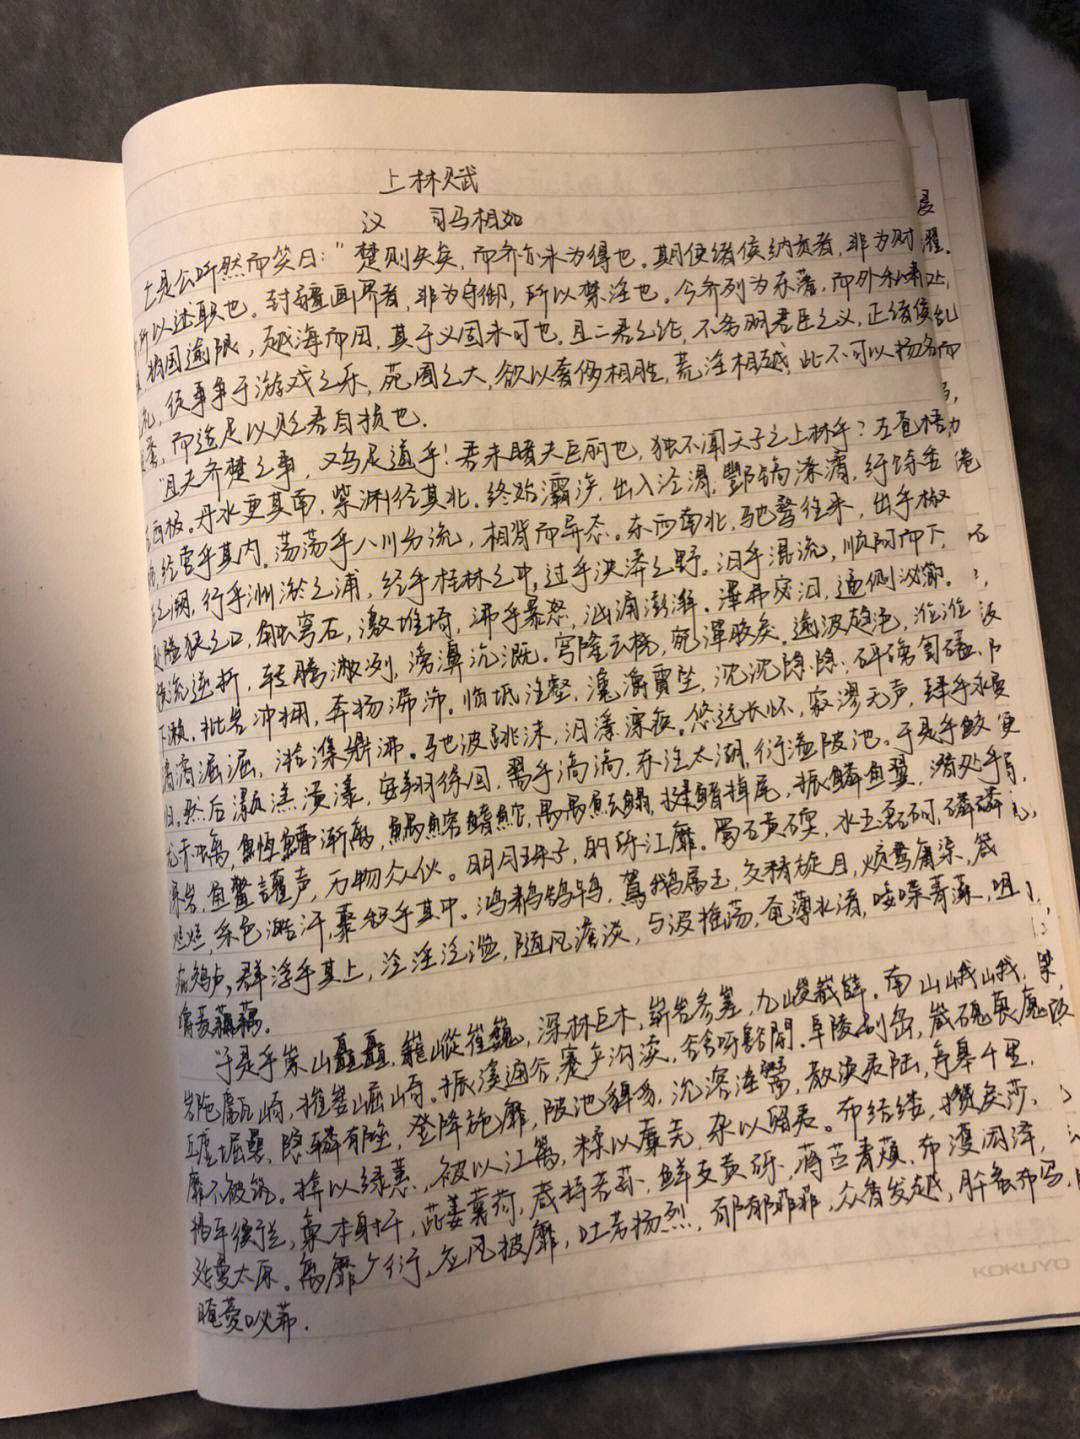 上林赋
汉 司马相如
亡是公听然而笑曰："楚则失矣，而齐亦未为得也。夫使诸侯纳贡者，非为财
所以述职也。封疆画界者，非为守御，所以禁淫也。今齐列为东藩，而外私肃
捐国逾限，越海而田，其于义固未可也。且二君之论，不务明君臣之义，正诸侯
礼，徒事争于游戏之乐，苑囿之大，欲以奢侈相胜，荒淫相越，此不可以扬名
而适足以贬君自损也.
"且夫齐楚之事，又乌足道乎！君未睹夫巨丽也，独不闻天子之上林乎？左苍梧
右西极。丹水更其南，紫渊径其北。终始灞浐，出入泾渭，酆镐潦潏，纡馀委
经营乎其内。荡荡乎八川分流，相背而异态。东西南北，驰骛往来，出乎椒
之阙，行乎洲淤之浦，经乎桂林之中，过乎泱漭之野。汩乎混流，顺阿而下，
隘狭之口，触穹石，激堆埼，沸乎暴怒，汹涌澎湃。滭弗宓汩，逼侧泌瀄。
横流逆折，转腾潎洌，滂濞沆溉。穹隆云桡，宛潬胶戾。逾波趋浥，涖涖
下濑，批岩冲拥，奔扬滞沛。临坻注壑，瀺灂霣坠，沈沈隐隐，砰磅訇磕，
潏潏淈淈，湁潗鼎沸。驰波跳沫，汩㵒漂疾。悠远长怀，寂漻无声，肆乎永
归，然后灏溔潢漾，安翔徐回，翯乎滈滈，东注太湖，衍溢陂池。于是乎蛟
赤螭，䱭䲛渐离，鰅鰫鳍鮀，禺禺魼鳎，揵鳍掉尾，振鳞奋翼，潜处乎
深岩，鱼鳖讙声，万物众伙。明月珠子，的砾江靡。蜀石黄碝，水玉磊砢，磷磷
烂烂，采色澔汗，藂积乎其中。鸿鹔鹄鸨，鴐鹅属玉，交精旋目，烦鹜庸渠，箴
疵䴔卢，群浮乎其上，泛淫泛滥，随风澹淡，与波摇荡，奄薄水渚，唼喋菁藻，咀
嚼菱藕.
于是乎崇山矗矗，巃嵷崔巍，深林巨木，崭岩参差，九嵕嶻嶭。南山峨峨，
岩陁甗崎，摧崣崛崎。振溪通谷，蹇产沟渎，谽呀豁閜。阜陵别岛，崴磈㟪廆
丘虚堀礨，隐辚郁㠥，登降施靡，陂池貏豸，沇溶淫鬻，散涣夷陆，亭皋千里，
靡不被筑。揜以绿蕙，被以江蓠，糅以蘼芜，杂以留夷。布结缕，攒戾莎，
揭车衡兰，槀本射干，茈姜蘘荷，葴持若荪，鲜支黄砾，蒋苎青薠，布濩闳泽，
延曼太原。离靡广衍，应风披靡，吐芳扬烈，郁郁菲菲，众香发越，肸蚃布写，
晻薆咇茀.
KOKUYO